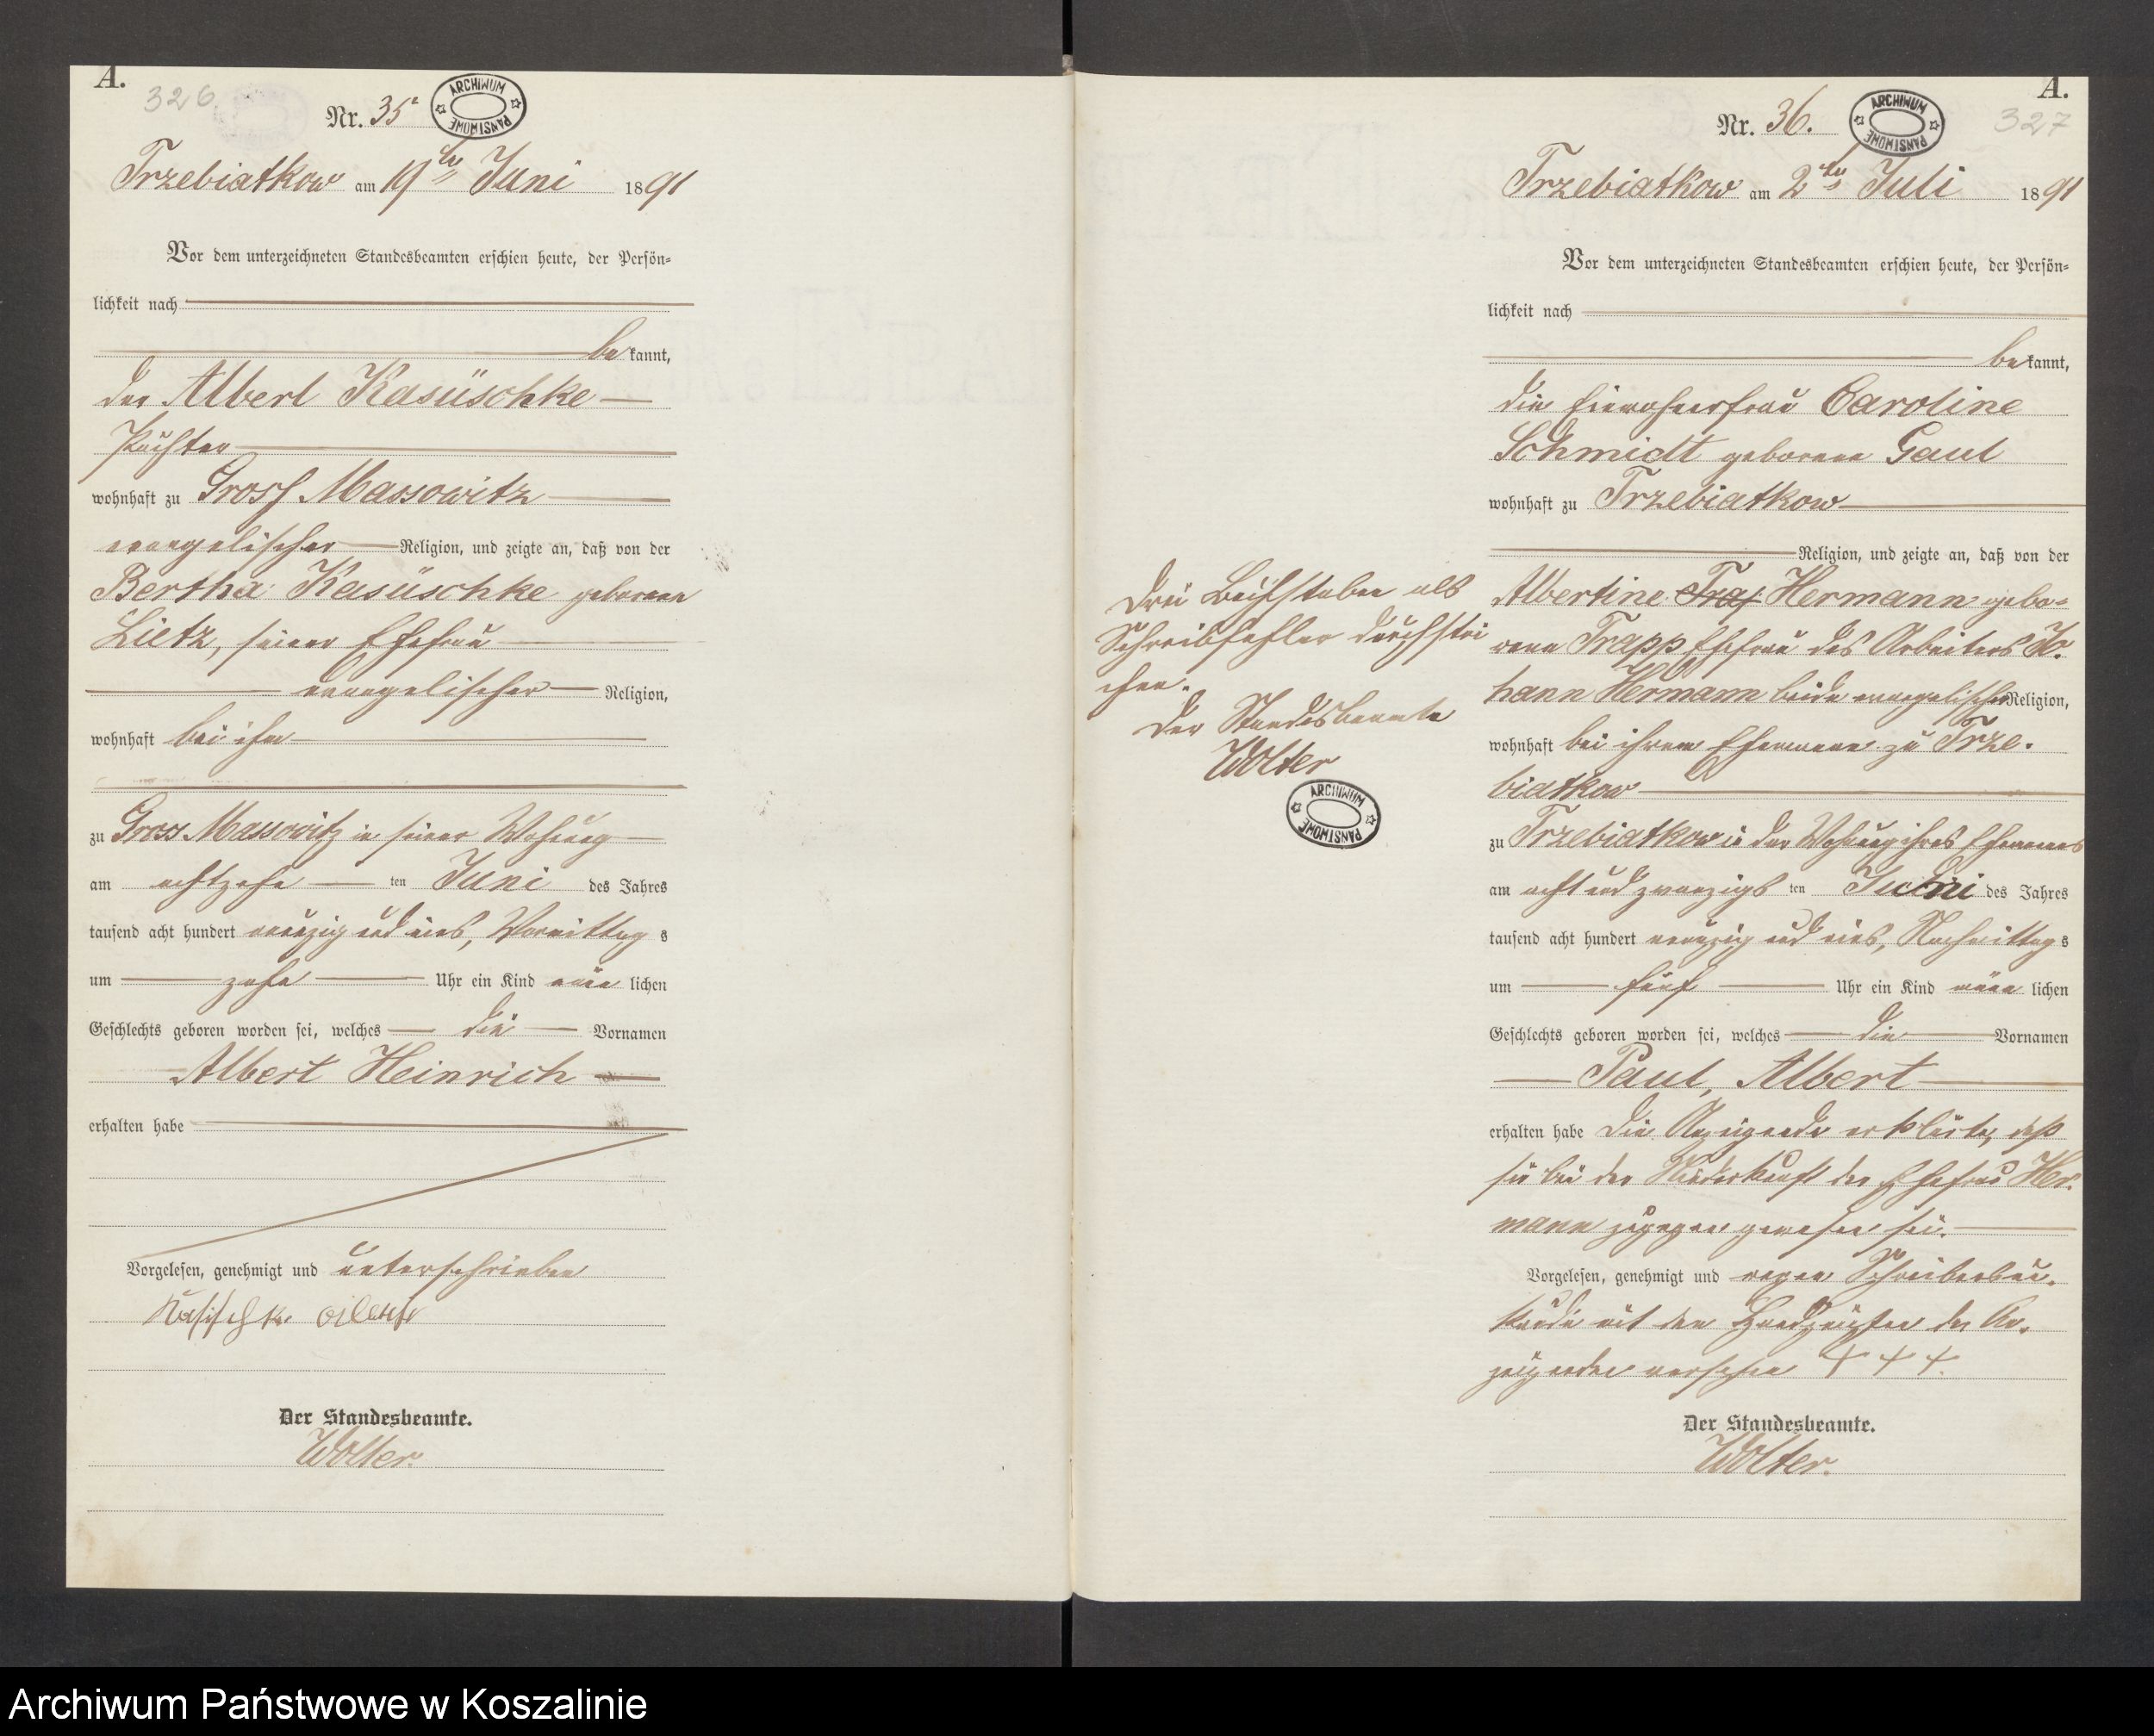 A.
326.
Nr. 35
ARCHIWUM PAŃSTWOWE
Trzebiatkow am 19ten Juni 1891
Vor dem unterzeichneten Standesbeamten erschien heute, der Persön-
lichkeit nach
bekannt,
der Albert Kasüschke
Pächter
wohnhaft zu Gross Massowitz
evangelischer Religion, und zeigte an, daß von der
Bertha Kasüschke geborene
Lietz, seiner Ehefrau
evangelischer Religion,
wohnhaft bei ihm
zu Gross Massowitz in seiner Wohnung
am achtzehn ten Juni des Jahres
tausend acht hundert neunzig und eins, Vormittag s
um zehn Uhr ein Kind männlichen
Geschlechts geboren worden sei, welches die Vornamen
Albert Heinrich
erhalten habe
Vorgelesen, genehmigt und unterschrieben
Der Standesbeamte.
Wolter.
A.
327
Nr. 36.
ARCHIWUM PAŃSTWOWE
Trzebiatkow am 2ten Juli 1891
Vor dem unterzeichneten Standesbeamten erschien heute, der Persön-
lichkeit nach
bekannt,
die Einwohnerfrau Caroline
Schmidt geborene Gaul
wohnhaft zu Trzebiatkow
Religion, und zeigte an, daß von der
Albertine Tra Hermann gebo-
rene Trapp Ehefrau des Arbeiters
hann Hermann beide evangelischer Religion,
wohnhaft bei ihrem Ehemann zu Trze-
biatkow
zu Trzebiatkow in der Wohnung ihres Ehemannes
am acht und zwanzigs ten Juni des Jahres
tausend acht hundert neunzig und eins, Nachmittag s
um fünf Uhr ein Kind männlichen
Geschlechts geboren worden sei, welches die Vornamen
Paul, Albert
erhalten habe Die Anzeigende erklärte, daß
sie bei der Niederkunft der Ehefrau Her-
mann zugegen gewesen sei.
Vorgelesen, genehmigt und wegen Schreibensun-
kunde mit den Handzeichen der An-
zeigenden versehen + + +.
Der Standesbeamte.
Wolter.
Drei Buchstaben als
Schreibfehler durchstri
chen.
Der Standesbeamte
Wolter
ARCHIWUM PAŃSTWOWE
Archiwum Państwowe w Koszalinie